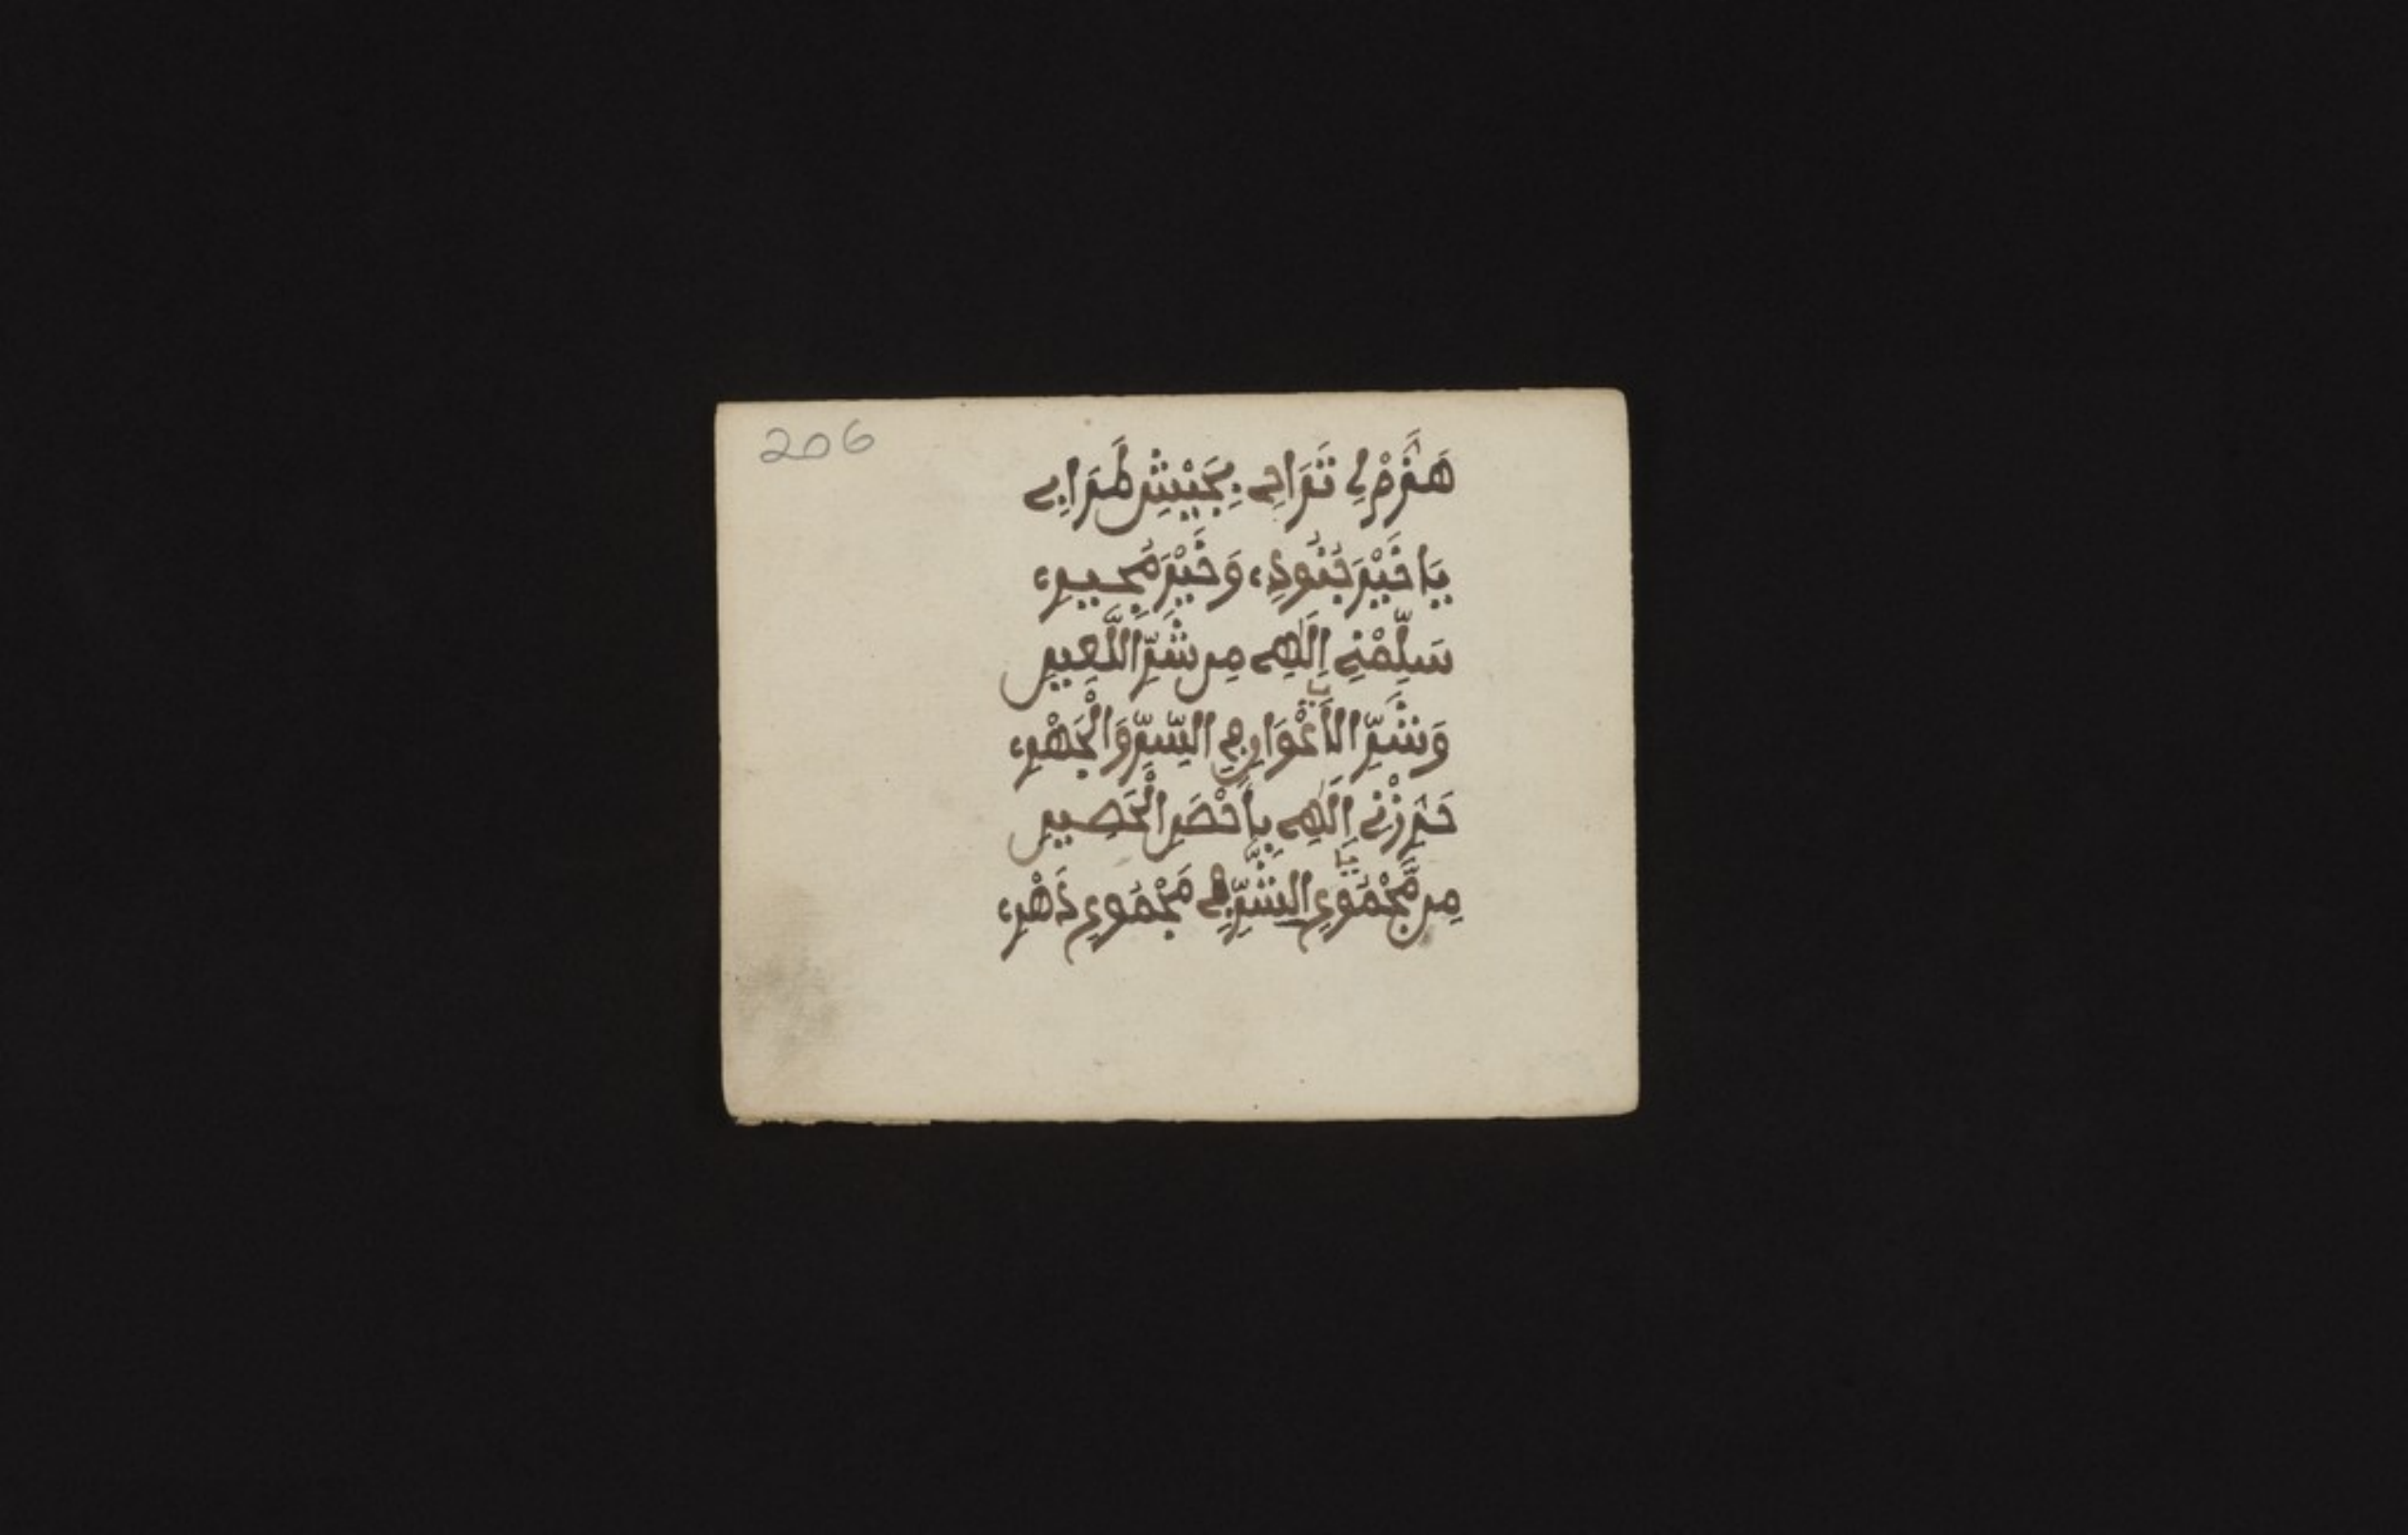 206
هَرِّمْ لِي تَرَاحِي بِجَيْشِ طَرَابِي
يَا خَيْرَ جُنُودِ، وَخَيْرَ مُجِيرِ،
سَلِّمْنِي إِلَٰهِي مِن شَرِّ اللَّعِينِ
وَشَرِّ الأَعْوَانِ فِي السِّرِّ وَالْجَهْرِ،
حَرِزْنِي إِلَٰهِي بِأَحْصَنِ الْحَصِينِ
مِن مَّجْمُوعِ الشَّرِّ فِي مَجْمُوعِ دَهْرِ،